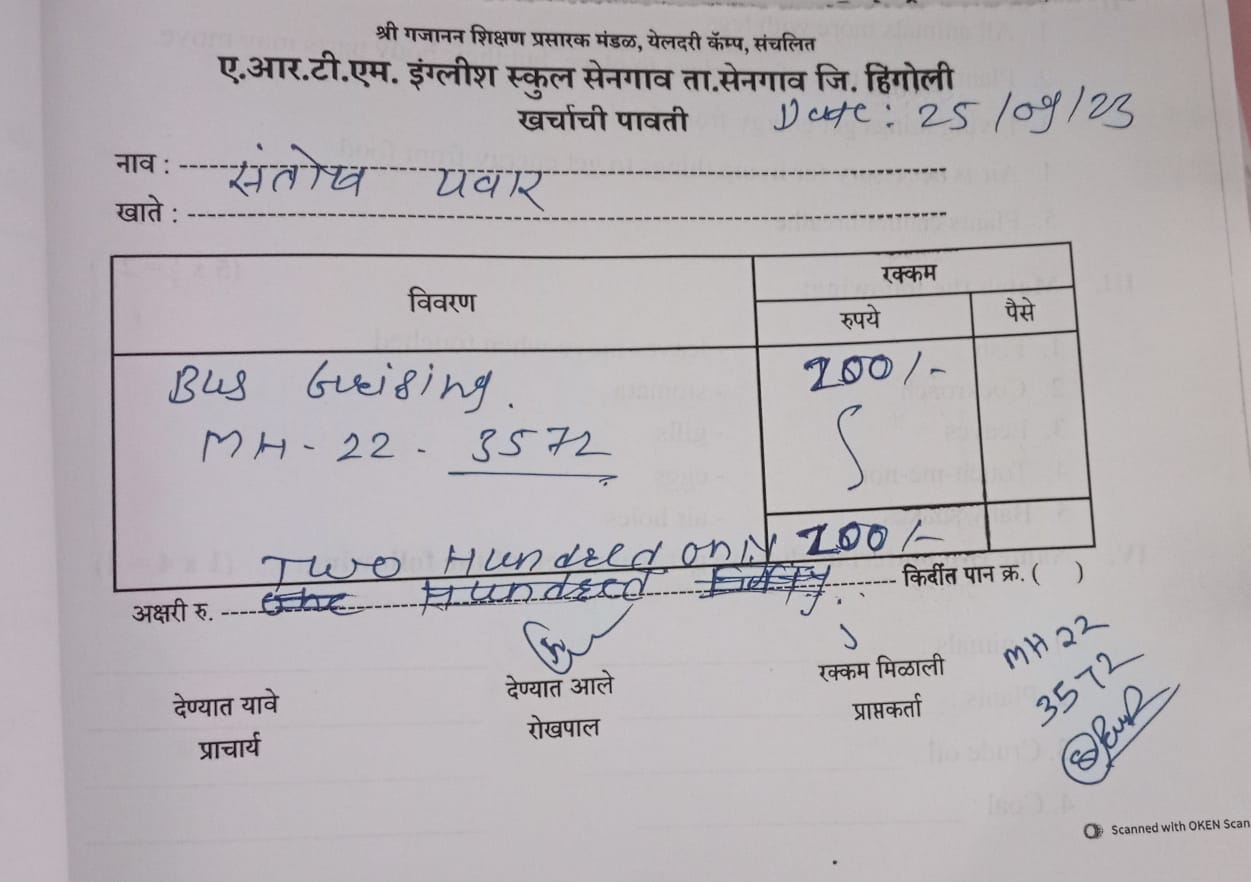 श्री गजानन शिक्षण प्रसारक मंडळ, येलदरी कॅम्प, संचलित
ए.आर.टी.एम. इंग्लीश स्कुल सेनगाव ता.सेनगाव जि. हिंगोली
खर्चाची पावती Date: 25/09/23
नाव : संतोष पवार
खाते :
विवरण रक्कम
रुपये पैसे
Bus Greising. 200/-
MH-22-3572
200/-
Two Hundred only
अक्षरी रु. One Hundred Fifty किर्दीत पान क्र. ( )
MH 22
3572
देण्यात यावे देण्यात आले रक्कम मिळाली
प्राचार्य रोखपाल प्राप्तकर्ता
Scanned with OKEN Scan